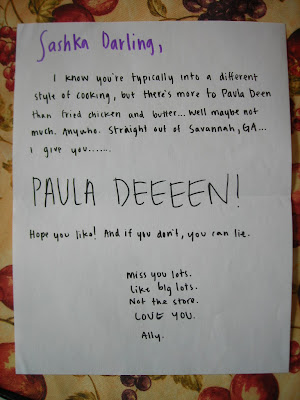 Sashka Darling,
I know you're typically into a different
style of cooking, but there's more to Paula Deen
than fried chicken and butter... well maybe not
much. Anywho. Straight out of Savannah, GA...
I give you.......
PAULA DEEEEN!
Hope you like! And if you don't, you can lie.
Miss you lots.
Like big lots.
Not the store.
LOVE YOU.
Ally.